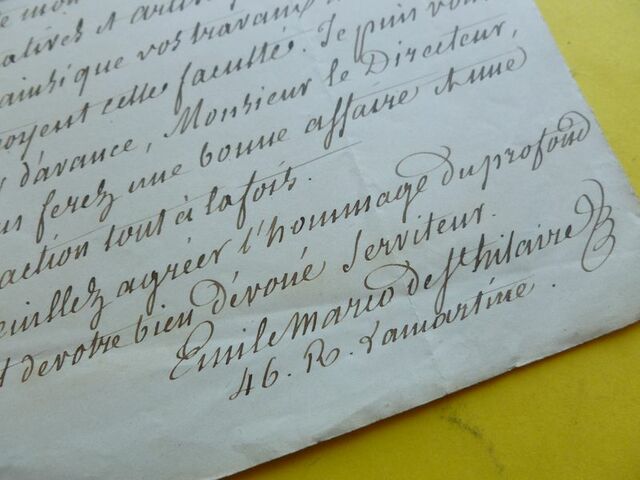 alités et artis
ainsi que vos travaux
oyent celles faculté. Je puis vou
d'avance, Monsieur le Directeur,
us ferez une bonne affaire et une
action tout à la fois.
euillez agréer l'hommage du profond
t de votre bien dévoué Serviteur.
Emile Marco de St hilaire
46. R. Lamartine.